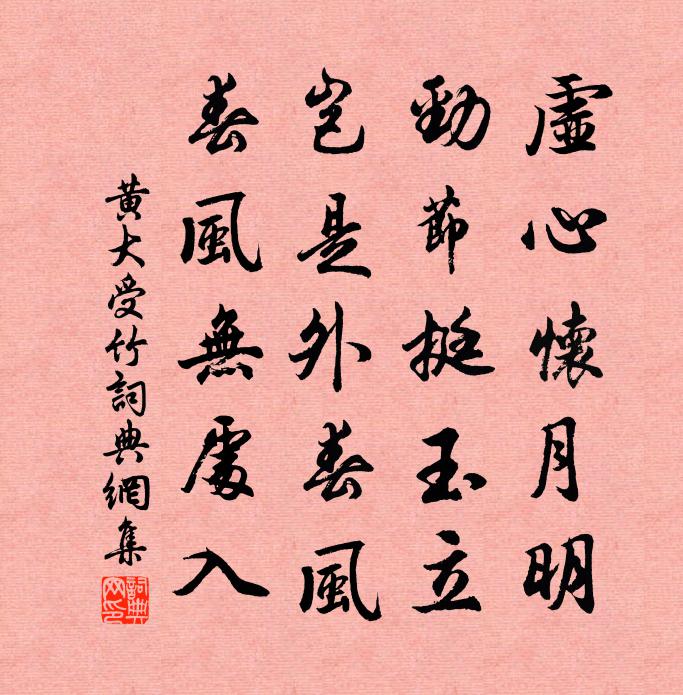 虛心懷月明
勁節挺玉立
豈是外春風
春風無處入
黃大受竹詞典網集
詞典網印